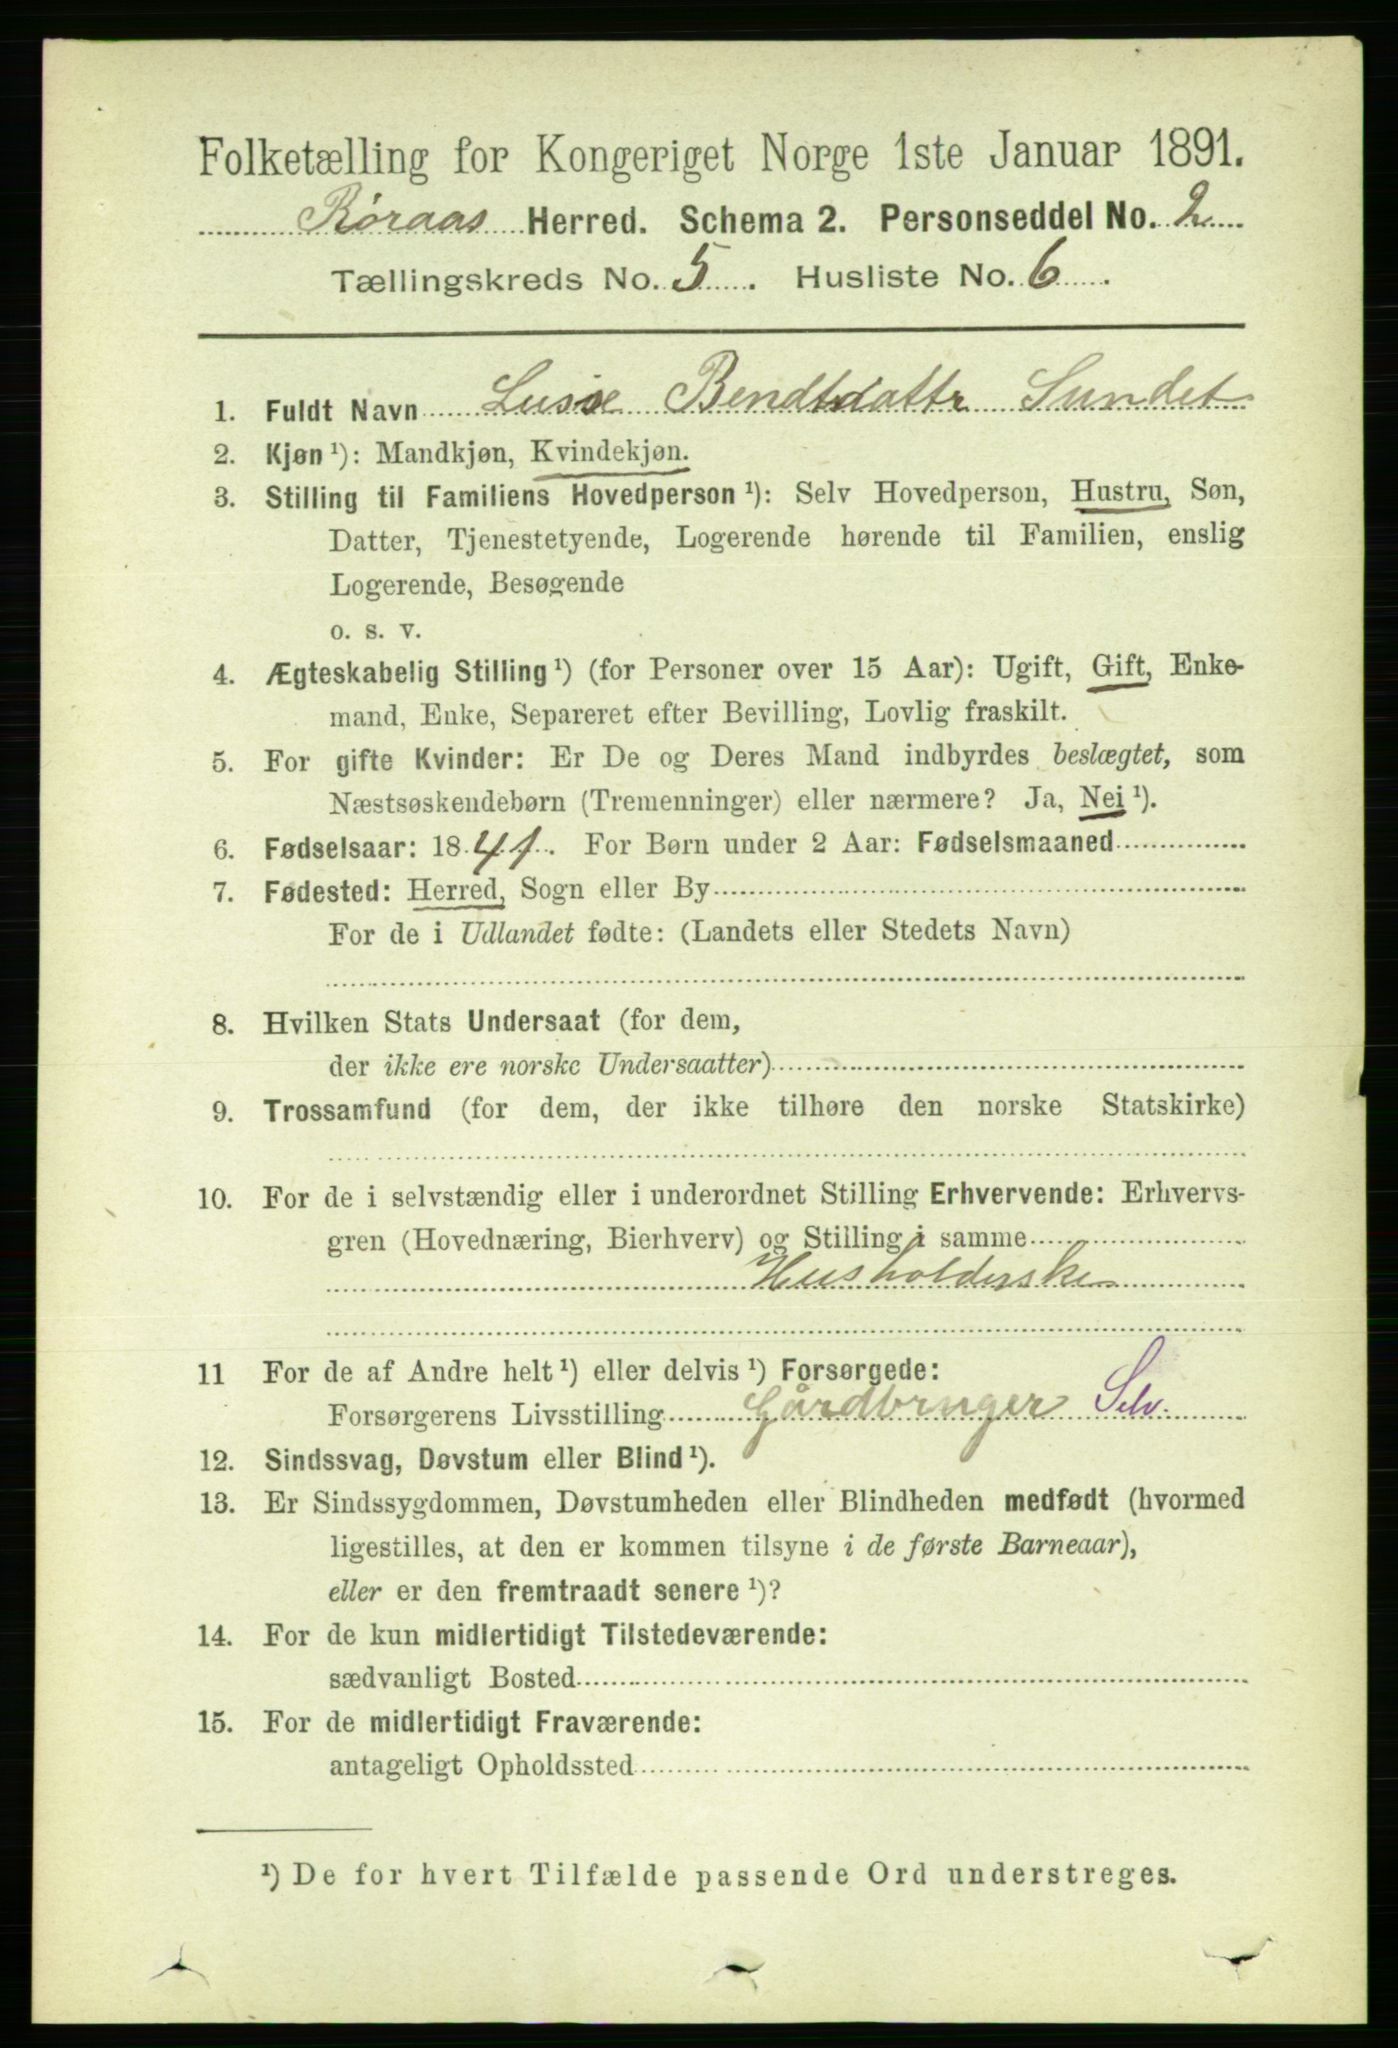 Folketælling for Kongeriget Norge 1ste Januar 1891.
Røraas Herred. Schema 2. Personseddel No. 2
Tællingskreds No. 5. Husliste No. 6.
1. Fuldt Navn Lusie Bendtdattr Sundet
2. Kjøn ¹): Mandkjøn, Kvindekjøn.
3. Stilling til Familiens Hovedperson ¹): Selv Hovedperson, Hustru, Søn,
Datter, Tjenestetyende, Logerende hørende til Familien, enslig
Logerende, Besøgende
o. s. v.
4. Ægteskabelig Stilling ¹) (for Personer over 15 Aar): Ugift, Gift, Enke-
mand, Enke, Separeret efter Bevilling, Lovlig fraskilt.
5. For gifte Kvinder: Er De og Deres Mand indbyrdes beslægtet, som
Næstsøskendebørn (Tremenninger) eller nærmere? Ja, Nei ¹).
6. Fødselsaar: 1841. For Børn under 2 Aar: Fødselsmaaned
7. Fødested: Herred, Sogn eller By
For de i Udlandet fødte: (Landets eller Stedets Navn)
8. Hvilken Stats Undersaat (for dem,
der ikke ere norske Undersaatter)
9. Trossamfund (for dem, der ikke tilhøre den norske Statskirke)
10. For de i selvstændig eller i underordnet Stilling Erhvervende: Erhvervs-
gren (Hovednæring, Bierhverv) og Stilling i samme
Husholderske
11 For de af Andre helt ¹) eller delvis ¹) Forsørgede:
Forsørgerens Livsstilling Gårdbruger Selv.
12. Sindssvag, Døvstum eller Blind ¹).
13. Er Sindssygdommen, Døvstumheden eller Blindheden medfødt (hvormed
ligestilles, at den er kommen tilsyne i de første Barneaar),
eller er den fremtraadt senere ¹)?
14. For de kun midlertidigt Tilstedeværende:
sædvanligt Bosted
15. For de midlertidigt Fraværende:
antageligt Opholdssted
¹) De for hvert Tilfælde passende Ord understreges.